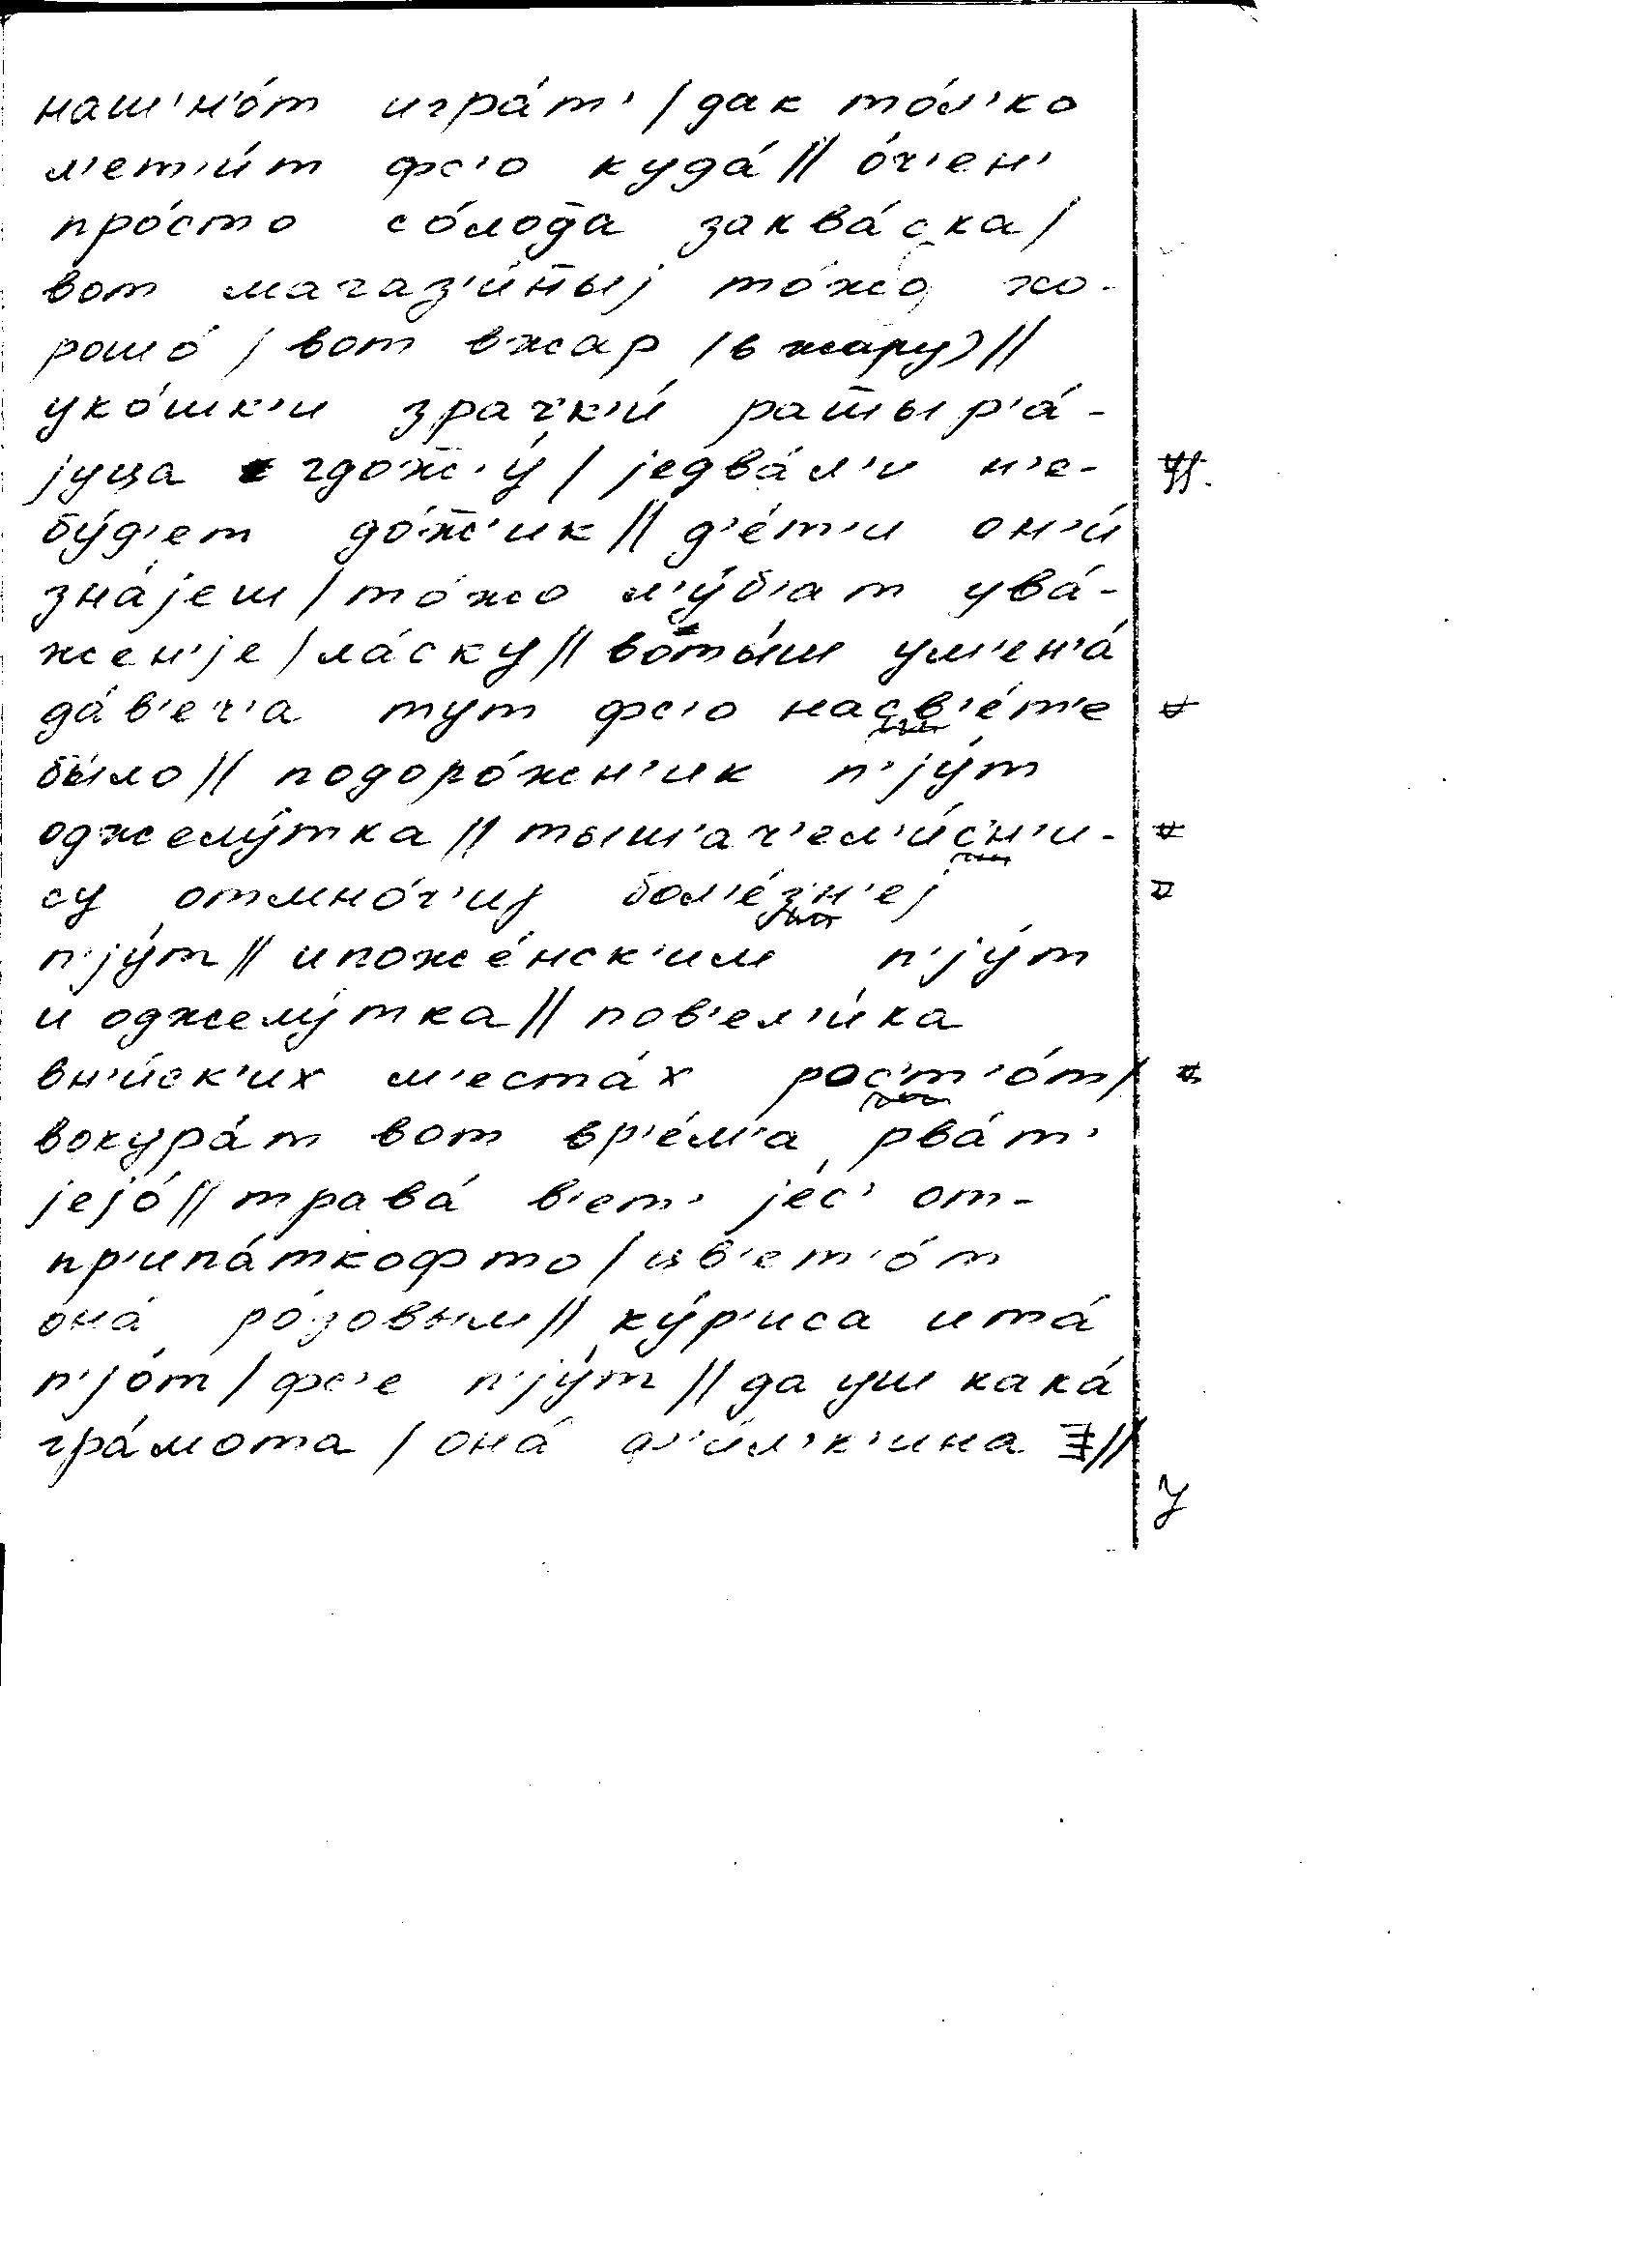 наш'н'о́т игра́т' / дак то́л'ко
л'ет'и́т фс'о куда́ // о́ч'ен'
про́сто со́лод̄а заква́ска /
вот магаз'и́н̄ыј то́жо хо-
рошо́ / вот вжар (в жару) //
уко́шк'и зрач'к'и́ рат̄ыр'а́-
јуца гдож̄'у́ / једва́л'и н'е-
бу́д'ет до́ж̄'ик // д'е́т'и он'и́
зна́јеш / то́жо л'у́б'ат ува́-
жен'је / ла́ску // вот̄ы́ш ум'ен'а́
да́в'еч'а тут фс'о насв'е́т'е
бы́ло // подоро́жн'ик п'ју́т
оджелу́тка // тыш'ач'ел'и́с'н'и-
су отмно́г'иј бол'е́з'н'еј
п'ју́т // ипоже́нск'им п'ју́т
и оджелу́тка // пов'ел'и́ка
вн'и́ск'их м'еста́х рос'т'о́т /
вокура́т вот вр'е́м'а рва́т'
јејо́ // трава́ в'ет' јес' от-
пр'ипа́ткофто / цв'ет'о́т
она́ ро́зовым // ку́р'иса ита́
п'јо́т / фс'е п'ју́т // да уш кака́
гра́мота / она́ ф'и́л'к'ина //